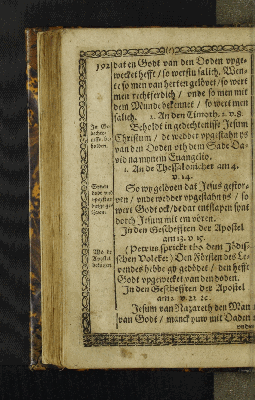 192 dat en Godt van den Doden vpge-
wecket hefft / so werstu salich. Wen-
te so men van herten gelövet / so wert
men rechtferdich / vnde so men mit
dem Munde bekennet / so wert men
salich. 1. An den Timoth. 2. v. 8.
Beholdt in gedechtenisse Jesum
Christum / de wedder vpgestahn ys
van den Doden vth dem Sade Da-
vid na mynem Euangelio.
1. An de Thessalonicher am 4.
v. 14.
So wy gelöven dat Jesus gestor-
ven / vnde wedder vpgestahn ys / so
wert Godt ock / de dar entslapen synt
dorch Jesum mit em vören.
In den Geschefften der Apostel
am 13. v. 15.
(Petrus spricket tho dem Jödi-
schen Volcke:) Den Försten des Le-
vendes hebbe gy gedödet / den hefft
Godt vpgewecket van den doden.
In den Geschefften der Apostel
am 2. v. 22. 2c.
Jesum van Nazareth den Man
van Godt / manck yuw mit Daden